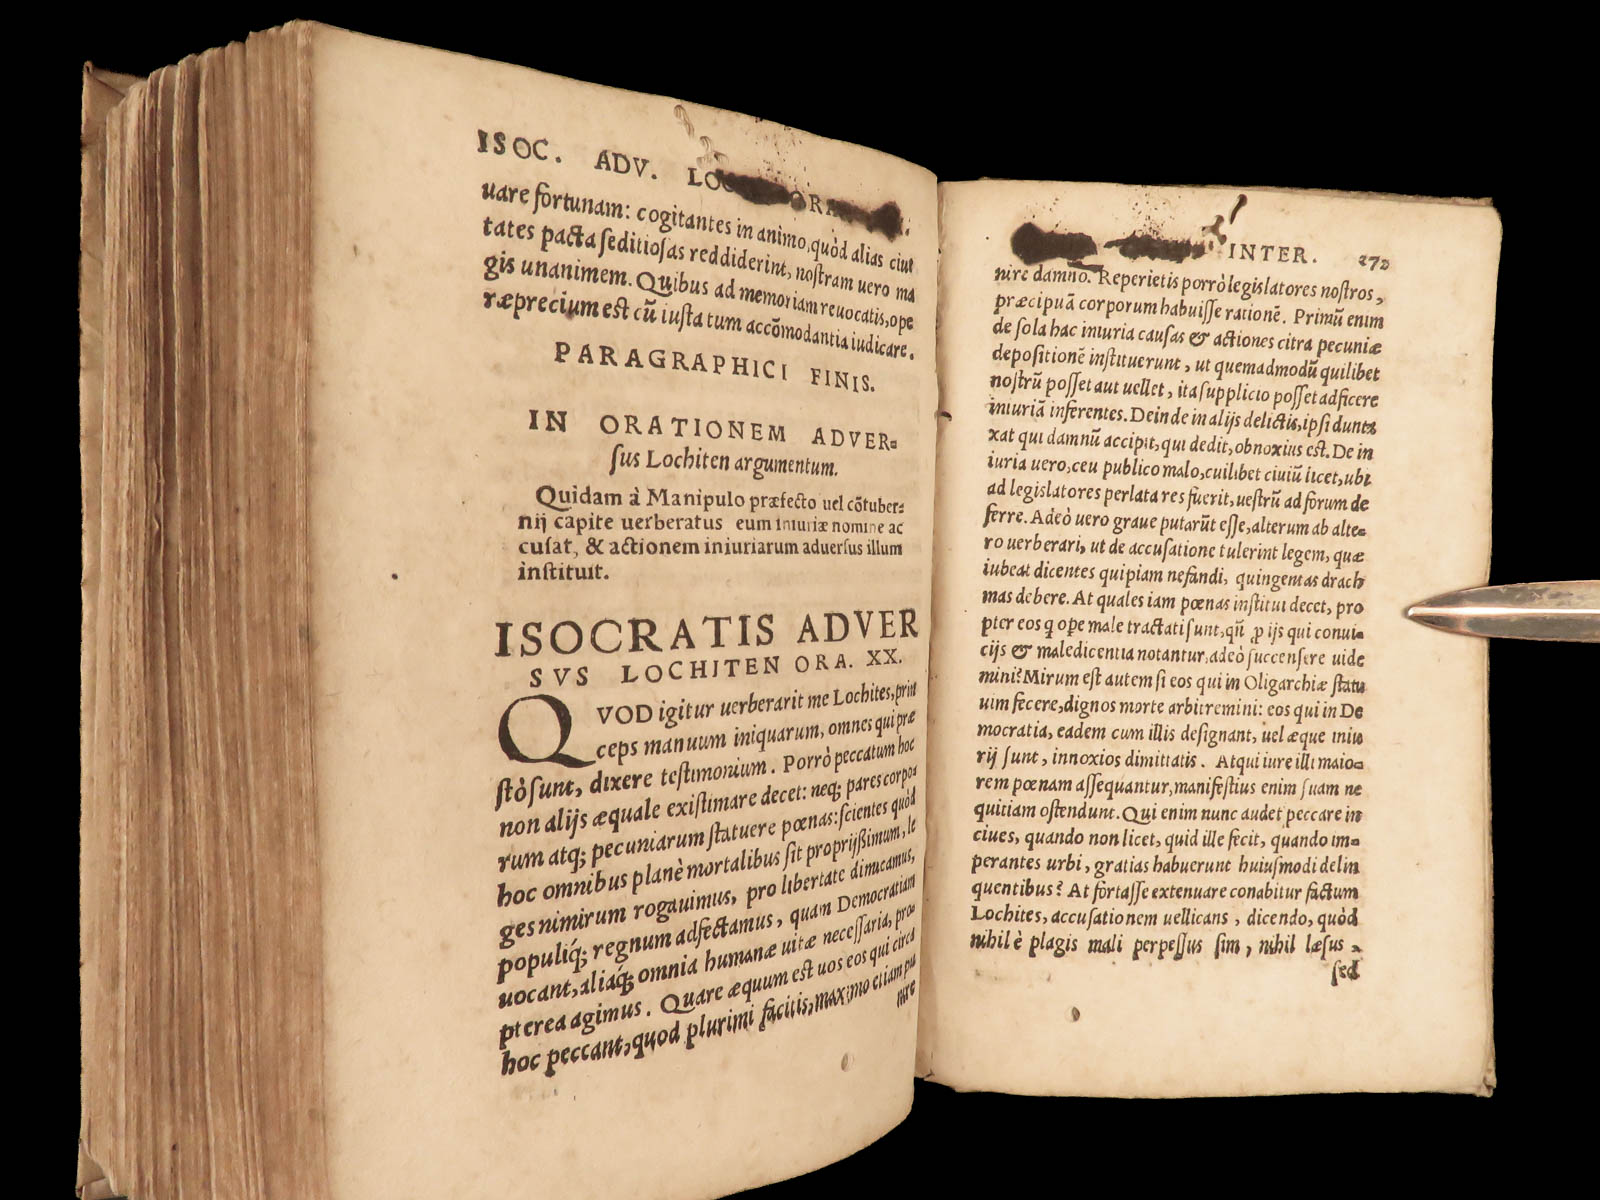 ISOC. ADV. LOC ORA
uare fortunam: cogitantes in animo, quòd alias ciui
tates pacta seditiosas reddiderint, nostram uero ma
gis unanimem. Quibus ad memoriam reuocatis, ope
ræprecium est cū iusta tum accōmodantia iudicare.
PARAGRAPHICI FINIS.
IN ORATIONEM ADVER=
sus Lochiten argumentum.
Quidam à Manipulo præfecto uel cōtuber=
nij capite uerberatus eum iniuriæ nomine ac
cusat, & actionem iniuriarum aduersus illum
instituit.
ISOCRATIS ADVER
SVS LOCHITEN ORA. XX.
QVOD igitur uerberarit me Lochites, prin
ceps manuum iniquarum, omnes qui præ
stò sunt, dixere testimonium. Porrò peccatum hoc
non alijs æquale existimare decet: neq; pares corpo
rum atq; pecuniarum statuere pœnas: scientes quòd
hoc omnibus planè mortalibus sit proprijssimum, le
ges nimirum rogauimus, pro libertate dimicamus,
populiq́; regnum adfectamus, quam Democratiam
uocant, aliaq́; omnia humanæ uitæ necessaria, pro=
pterea agimus. Quare æquum est uos eos qui circa
hoc peccant, quod plurimi facitis, maximo etiam pu
nire
INTER. 272
nire damno. Reperietis porrò legislatores nostros,
præcipuā corporum habuisse rationē. Primū enim
de sola hac iniuria causas & actiones citra pecuniæ
depositionē instituerunt, ut quemadmodū quilibet
nostrū posset aut uellet, ita supplicio posset adficere
iniuriā inferentes. Deinde in alijs delictis, ipsi dunta
xat qui damnū accipit, qui dedit, obnoxius est. De in
iuria uero, ceu publico malo, cuilibet ciuiū licet, ubi
ad legislatores perlata res fuerit, uestrū ad forum de
ferre. Adeò uero graue putarūt esse, alterum ab alte=
ro uerberari, ut de accusatione tulerint legem, quæ
iubeat dicentes quipiam nefandi, quingentas drach
mas debere. At quales iam pœnas institui decet, pro
pter eos q ope male tractati sunt, qū p ijs qui conui=
cijs & maledicentia notantur, adeò succensere uide
mini? Mirum est autem si eos qui in Oligarchiæ statu
uim fecere, dignos morte arbitremini: eos qui in De
mocratia, eadem cum illis designant, uel æque iniu
rij sunt, innoxios dimittatis. Atqui iure illi maio=
rem pœnam assequantur, manifestius enim suam ne
quitiam ostendunt. Qui enim nunc audet peccare in
ciues, quando non licet, quid ille fecit, quando im=
perantes urbi, gratias habuerunt huiusmodi delin
quentibus? At fortasse extenuare conabitur factum
Lochites, accusationem uellicans, dicendo, quòd
nihil è plagis mali perpessus sim, nihil læsus,
sed